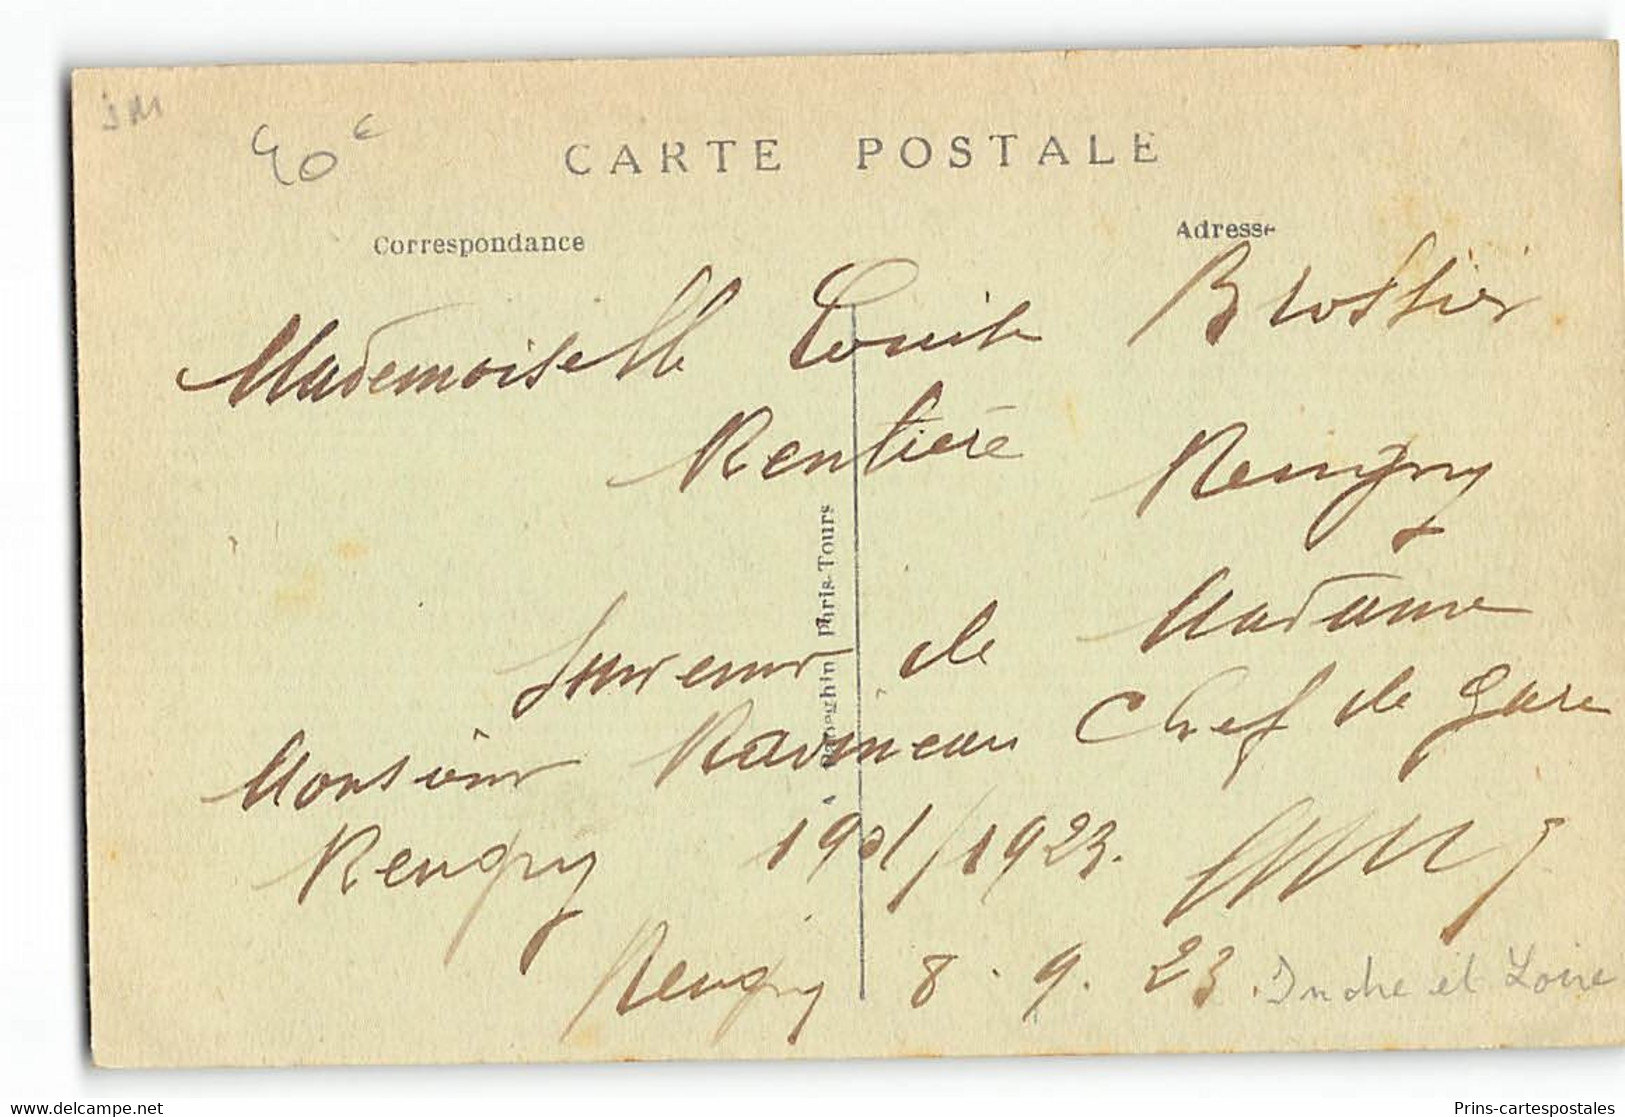 JM
40 €
CARTE POSTALE
Correspondance
Adresse
Mademoiselle Louise Brossier
Rentière Reugny
Souvenir de Madame
Monsieur Ravineau Chef de Gare
Reugny 1901/1923.
Reugny 8.9.23. Indre et Loire
Paris-Tours
www.delcampe.net
Prins-cartespostales